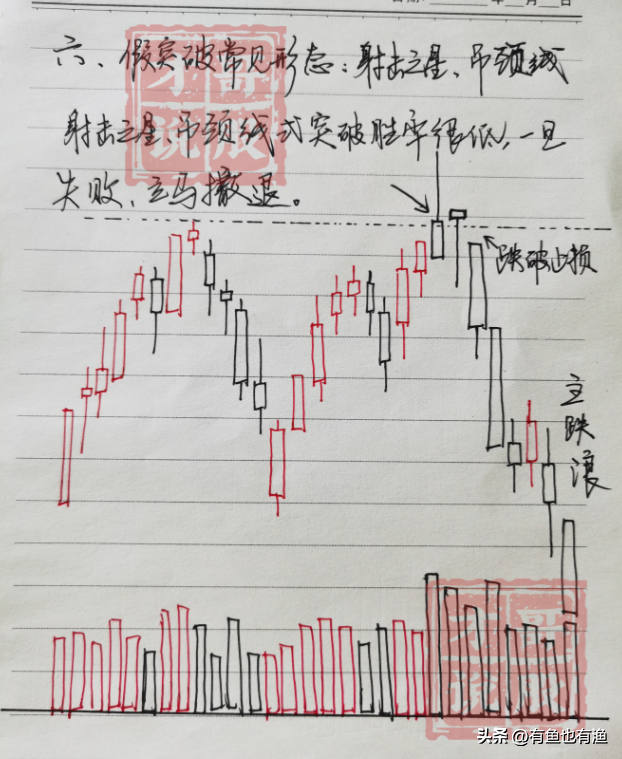 日期: 年 月 日
六、假突破常见形态：射击之星、吊颈线
射击之星、吊颈线式突破胜率很低，一旦
失败，立马撤退。
跌破止损
主跌浪
头条 @有鱼也有渔